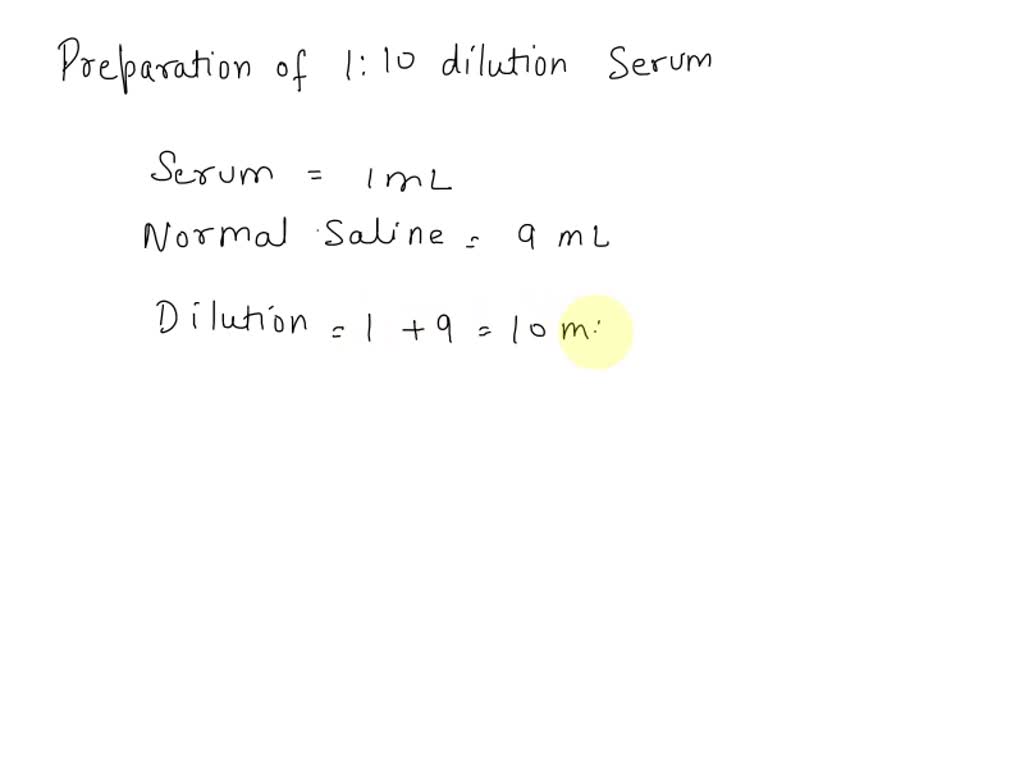 Preparation of 1:10 dilution Serum
Serum = 1 mL
Normal Saline = 9 mL
Dilution = 1 + 9 = 10 m